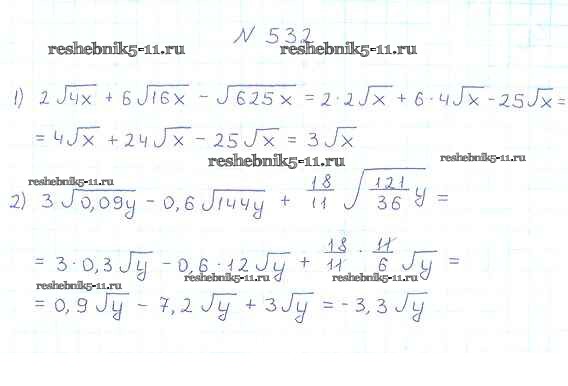 N 532
reshebnik5-11.ru reshebnik5-11.ru
1) 2√4x + 6√16x − √625x = 2·2√x + 6·4√x − 25√x =
= 4√x + 24√x − 25√x = 3√x
reshebnik5-11.ru reshebnik5-11.ru
reshebnik5-11.ru
2) 3√0,09y − 0,6√144y + 18/11 √121/36 y =
= 3·0,3√y − 0,6·12√y + 18/11 · 11/6 √y =
reshebnik5-11.ru reshebnik5-11.ru reshebnik5-11.ru
= 0,9√y − 7,2√y + 3√y = -3,3√y